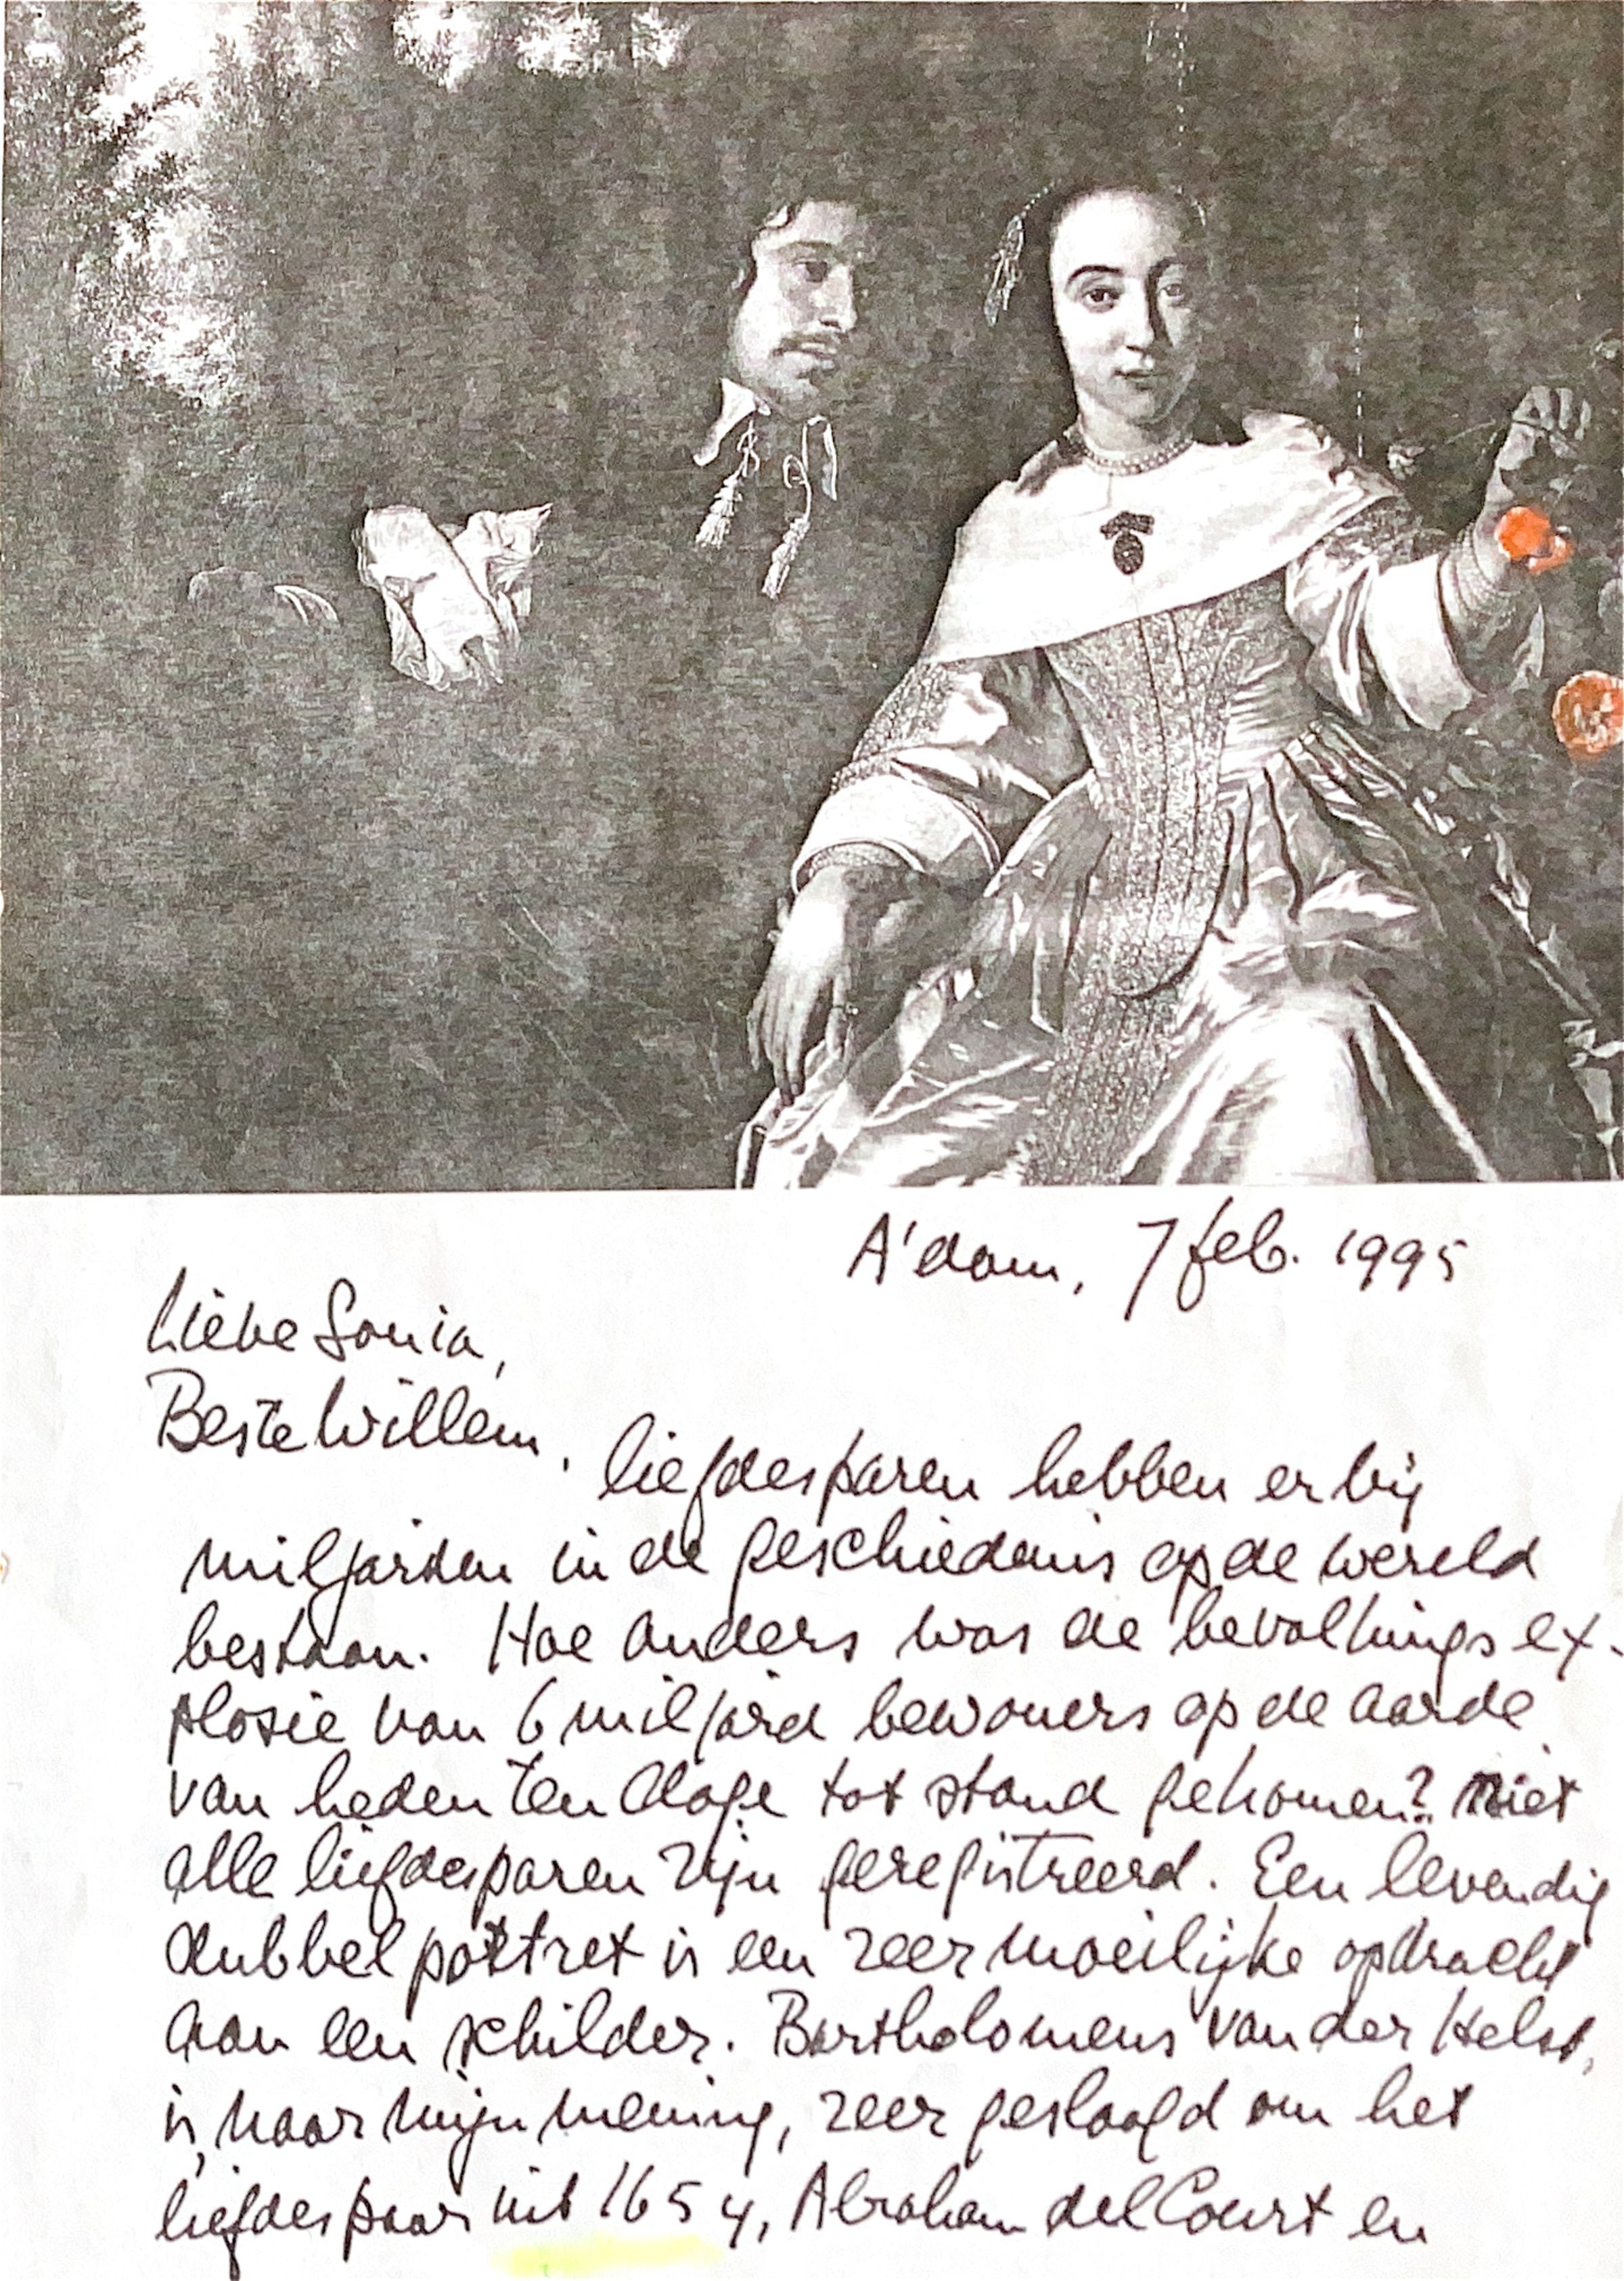 A'dam, 7 feb. 1995
Lieve Sonia,
Beste Willem,
liefdesparen hebben er bij
miljarden in de geschiedenis op de wereld
bestaan. Hoe anders was de bevolkings ex-
plosie van 6 miljard bewoners op de aarde
van heden ten dage tot stand gekomen? Niet
alle liefdesparen zijn geregistreerd. Een levendig
dubbel portret is een zeer moeilijke opdracht
aan een schilder. Bartholomeus van der Helst,
is, naar mijn mening, zeer geslaagd om het
liefdespaar uit 1654, Abraham del Court en